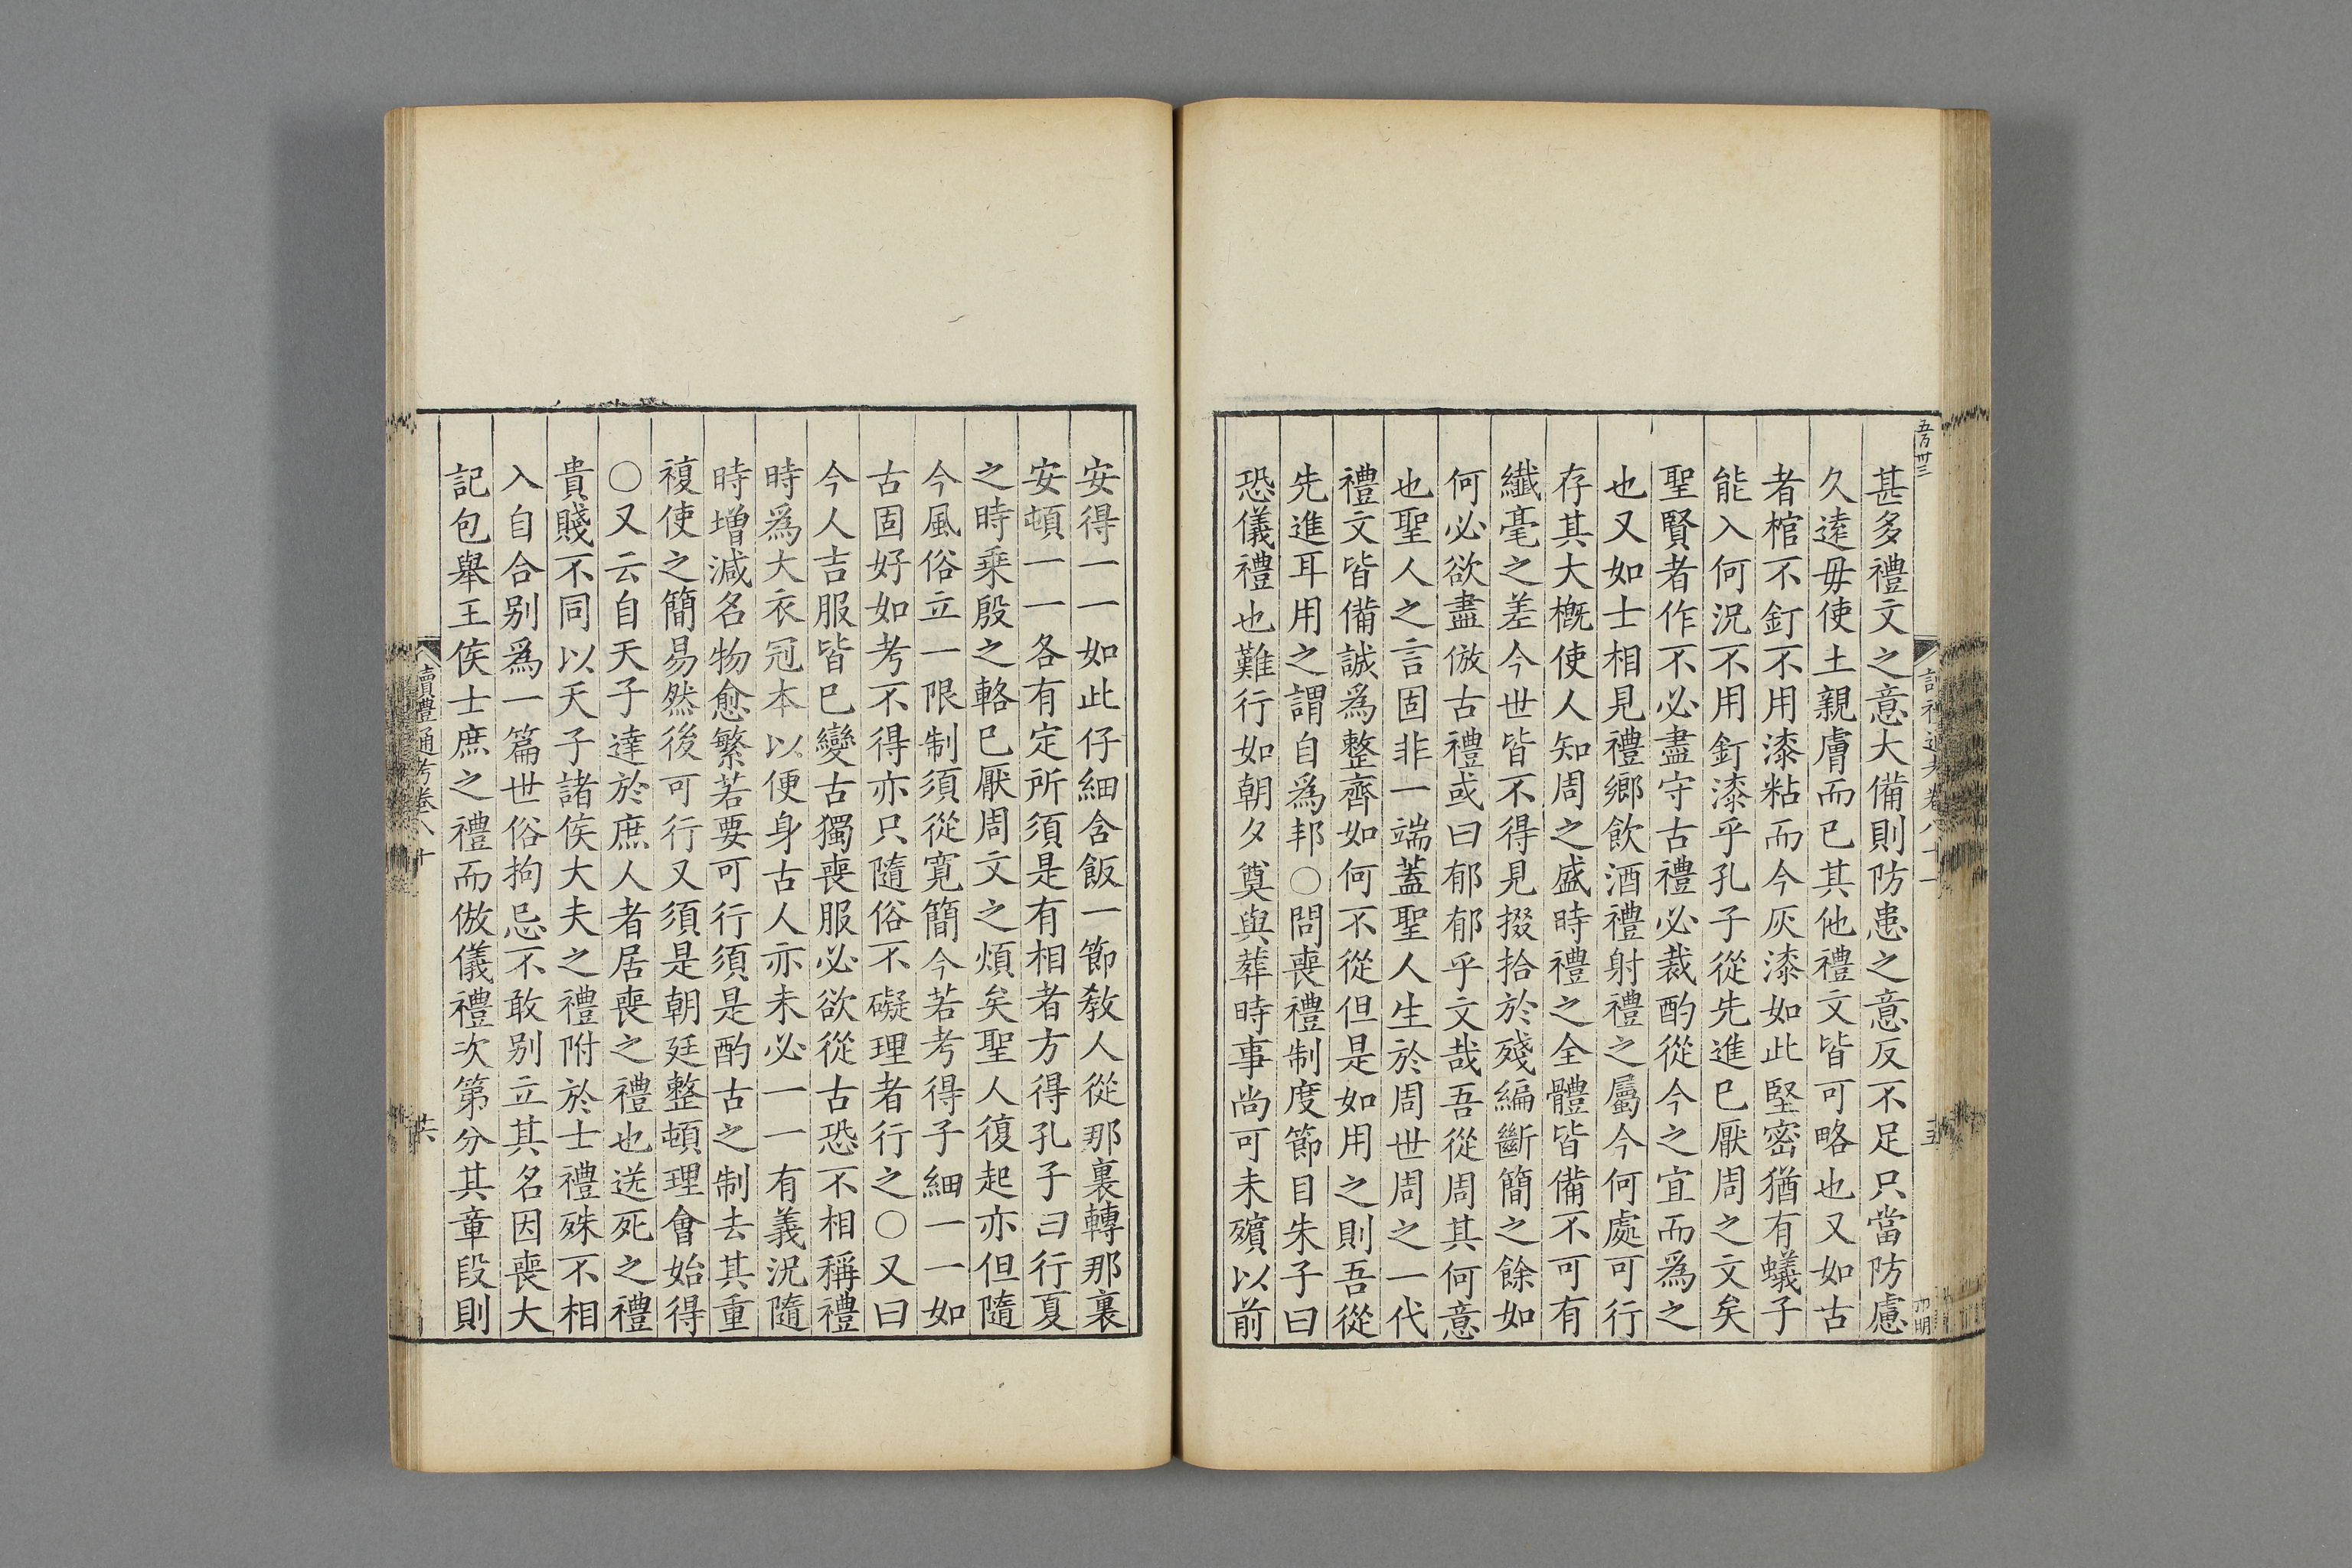 五百卅三
甚多禮文之意大備則防患之意反不足只當防慮
久逺毋使土親膚而已其他禮文皆可略也又如古
者棺不釘不用漆粘而今灰漆如此堅密猶有蟻子
能入何況不用釘漆乎孔子從先進已厭周之文矣
聖賢者作不必盡守古禮必裁酌從今之宜而爲之
也又如士相見禮鄉飲酒禮射禮之屬今何處可行
存其大槪使人知周之盛時禮之全體皆備不可有
纖毫之差今世皆不得見掇拾於殘編斷簡之餘如
何必欲盡倣古禮或曰郁郁乎文哉吾從周其何意
也聖人之言固非一端蓋聖人生於周世周之一代
禮文皆備誠爲整齊如何不從但是如用之則吾從
先進耳用之謂自爲邦〇問喪禮制度節目朱子曰
恐儀禮也難行如朝夕奠與葬時事尚可未殯以前
安得一一如此仔細含飯一節敎人從那裏轉那裏
安頓一一各有定所須是有相者方得孔子曰行夏
之時乗殷之輅已厭周文之煩矣聖人復起亦但隨
今風俗立一限制須從寬簡今若考得子細一一如
古固好如考不得亦只隨俗不礙理者行之〇又曰
今人吉服皆已變古獨喪服必欲從古恐不相稱禮
時爲大衣冠本以便身古人亦未必一一有義況隨
時增減名物愈繁若要可行須是酌古之制去其重
複使之簡易然後可行又須是朝廷整頓理會始得
〇又云自天子達於庶人者居喪之禮也送死之禮
貴賤不同以天子諸侯大夫之禮附於士禮殊不相
入自合别爲一篇世俗拘忌不敢别立其名因喪大
記包舉王侯士庶之禮而倣儀禮次第分其章段則
讀禮通考卷八十